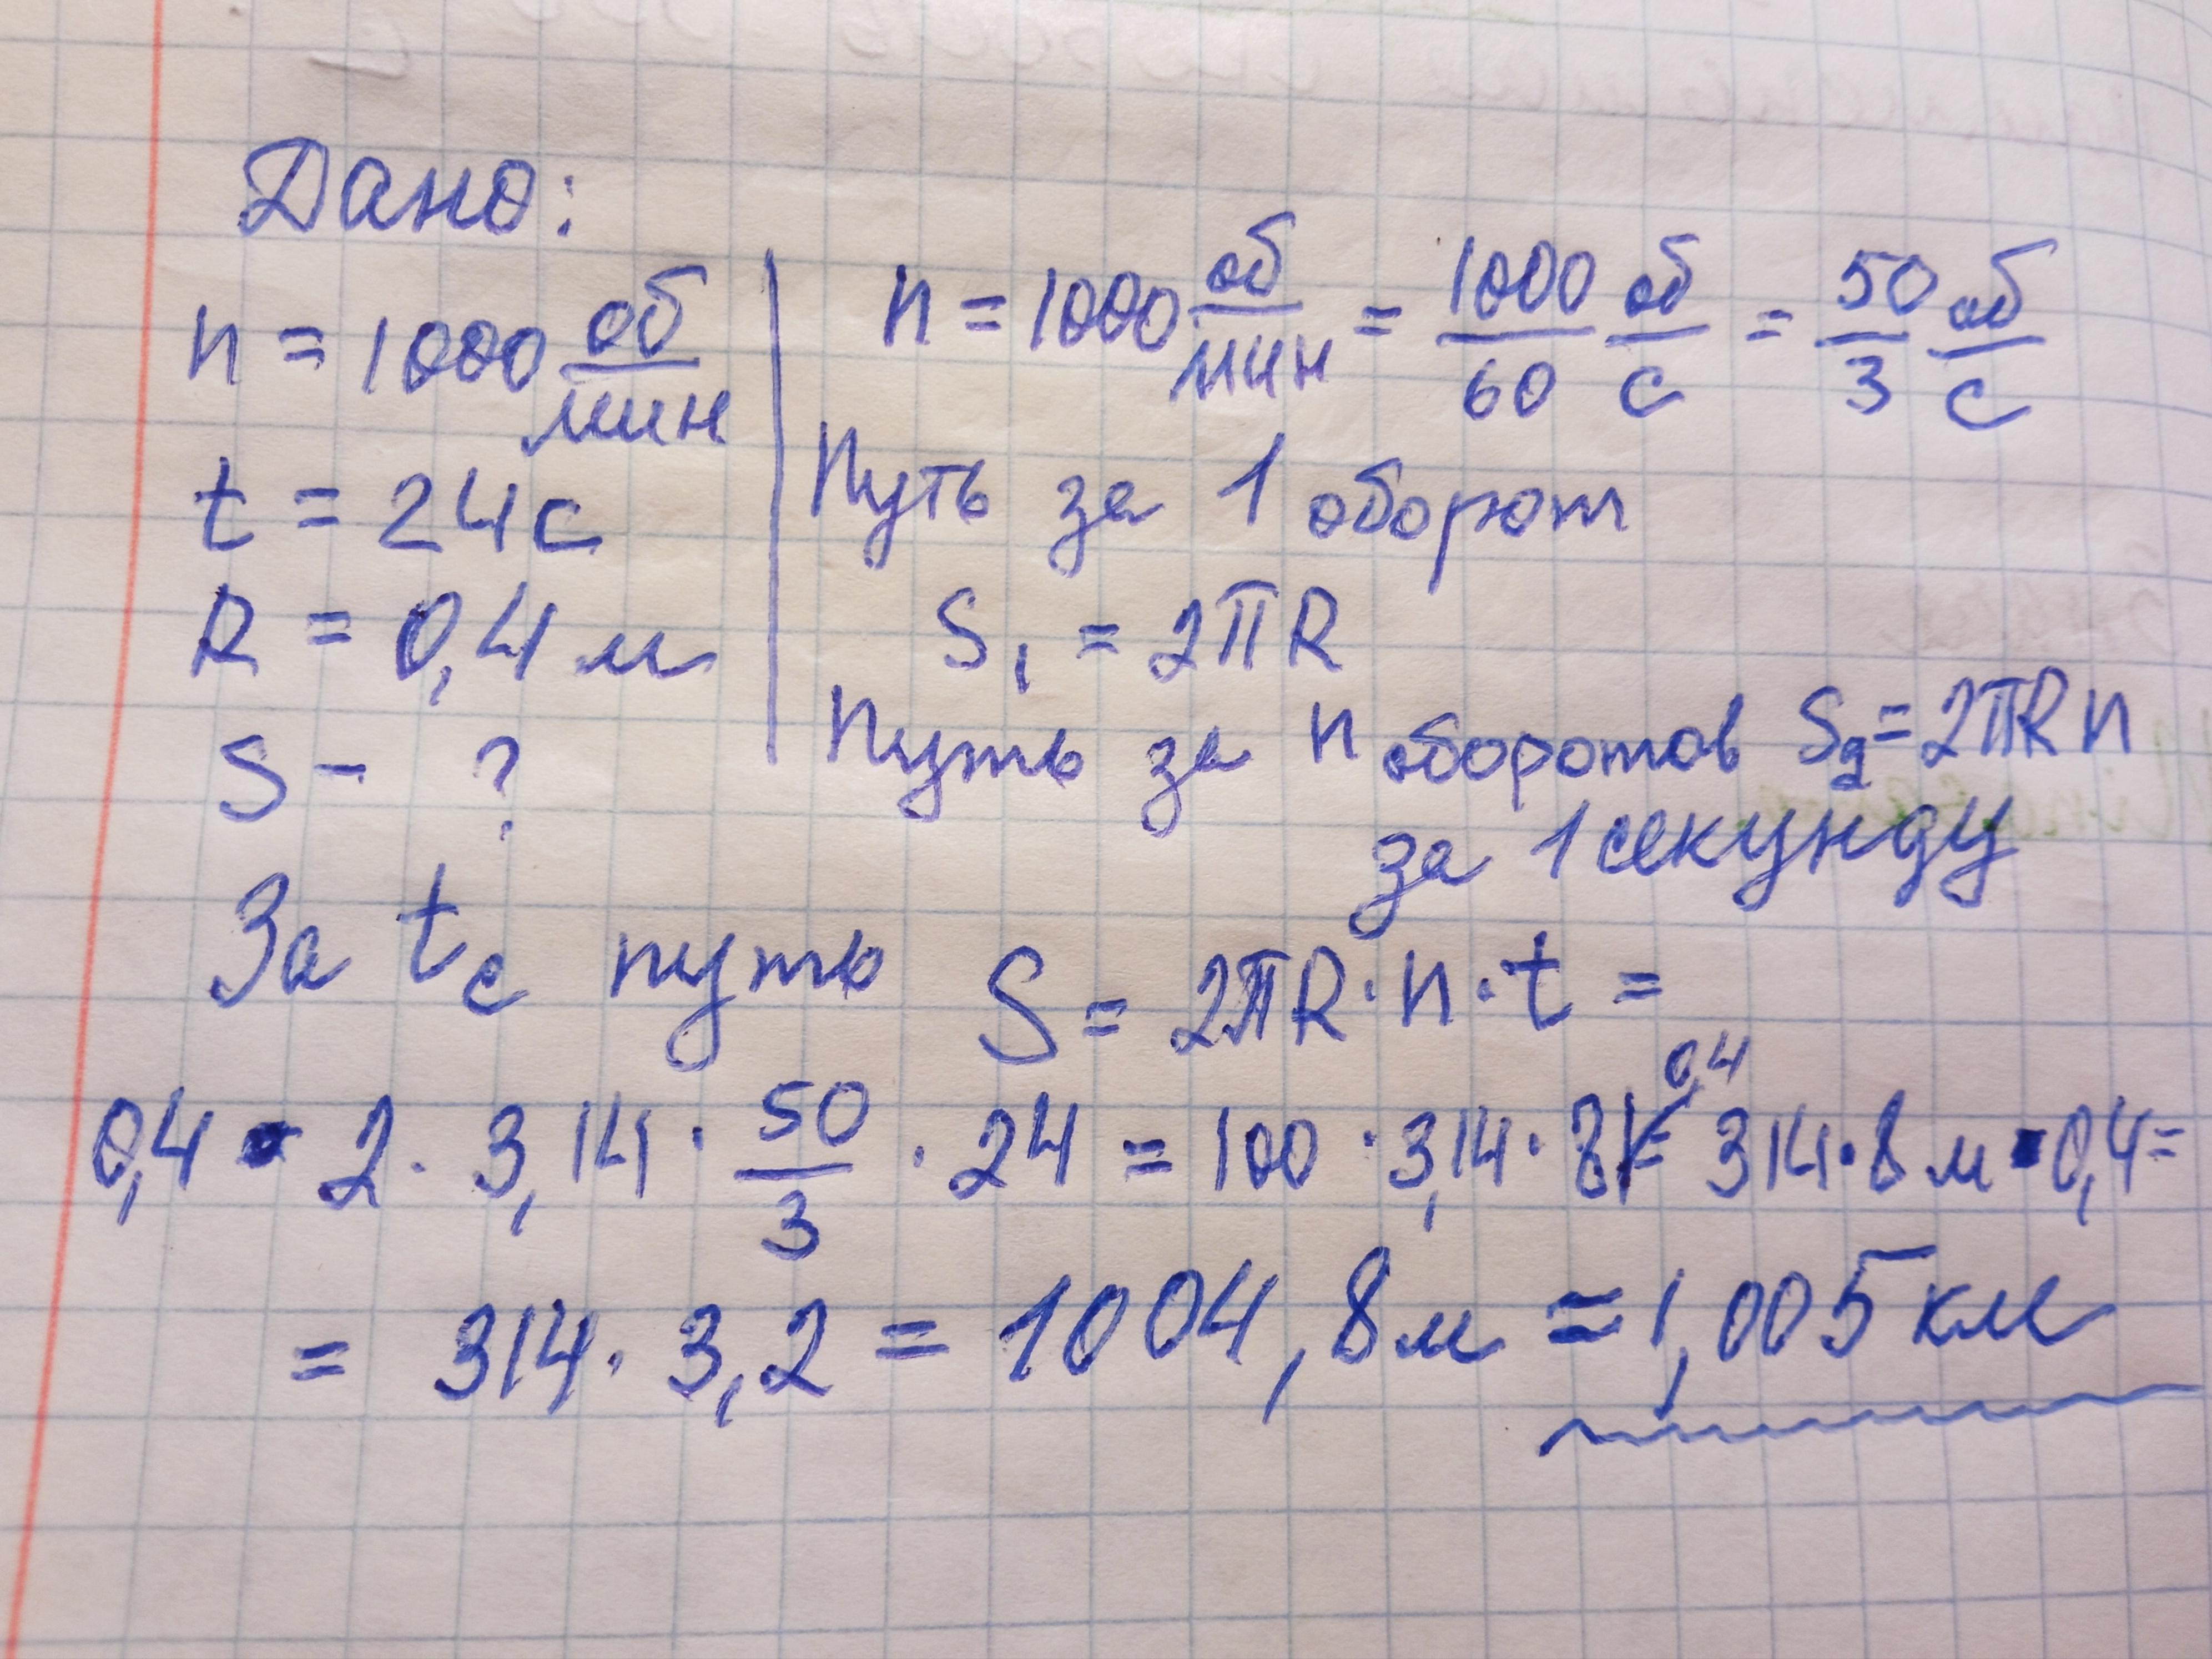 Дано:
n = 1000 об/мин
t = 24 с
R = 0,4 м
S - ?
n = 1000 об/мин = 1000/60 об/с = 50/3 об/с
Путь за 1 оборот
S₁ = 2πR
Путь за n оборотов S₂ = 2πRn
за 1 секунду
За t с путь S = 2πR·n·t =
0,4 · 2 · 3,14 · 50/3 · 24 = 100 · 3,14 · 8 · 0,4 = 314 · 8 м · 0,4 =
= 314 · 3,2 = 1004,8 м ≈ 1,005 км